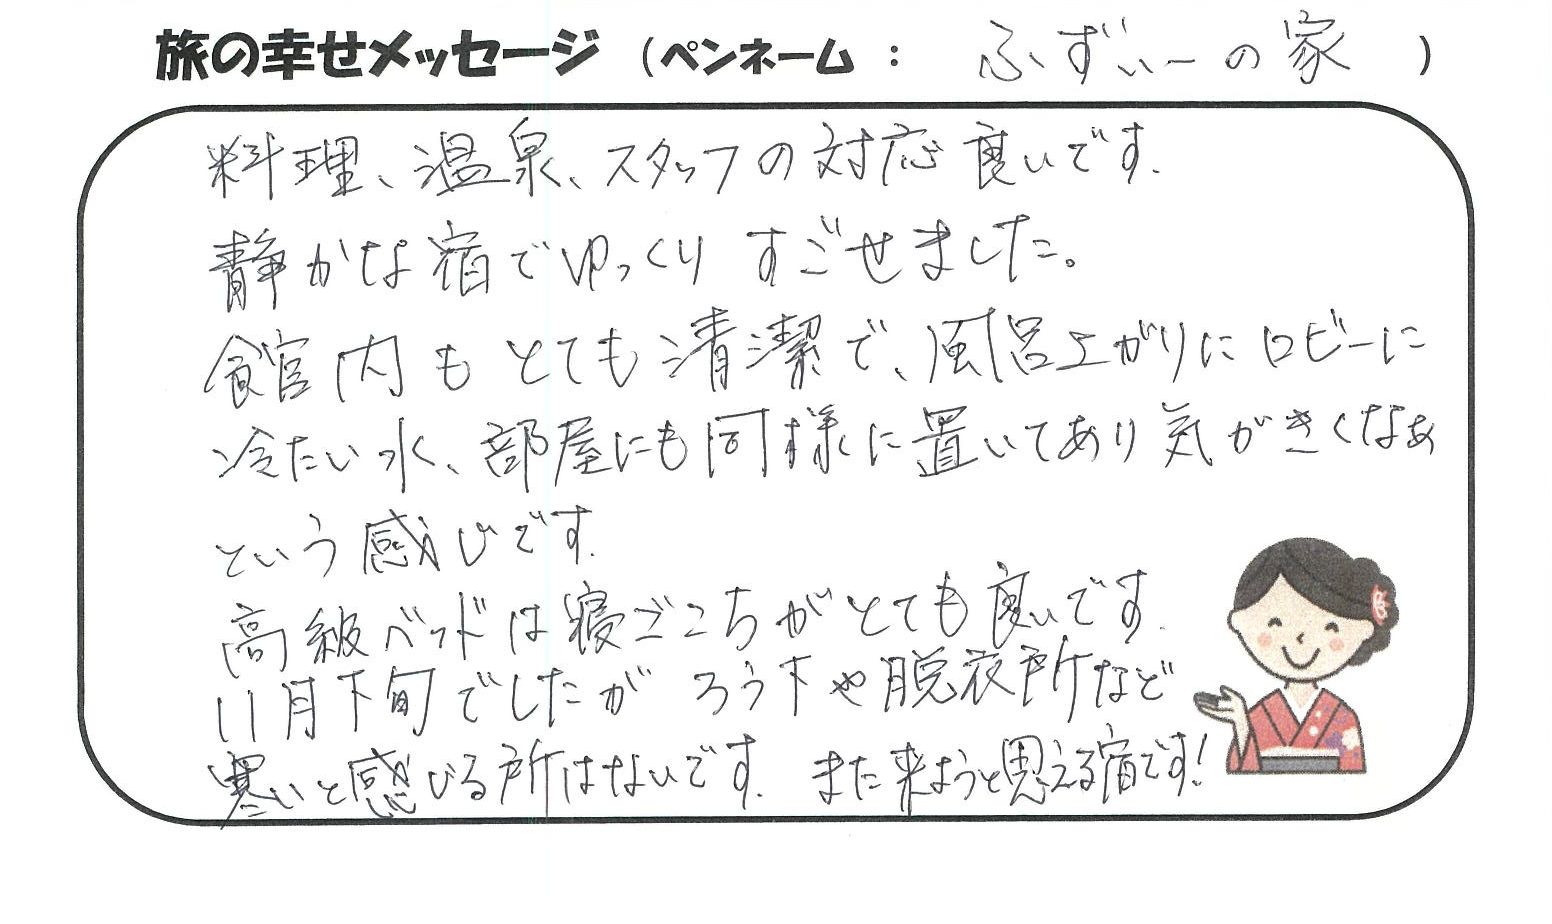 旅の幸せメッセージ (ペンネーム : ふずぃーの家 )
料理、温泉、スタッフの対応良いです.
静かな宿でゆっくりすごせました。
館内もとても清潔で、風呂上がりにロビーに
冷たい水、部屋にも同様に置いてあり気がきくなぁ
という感じです.
高級ベッドは寝ごこちがとても良いです.
11月下旬でしたが ろう下や脱衣所など
寒いと感じる所はないです. また来ようと思える宿です!